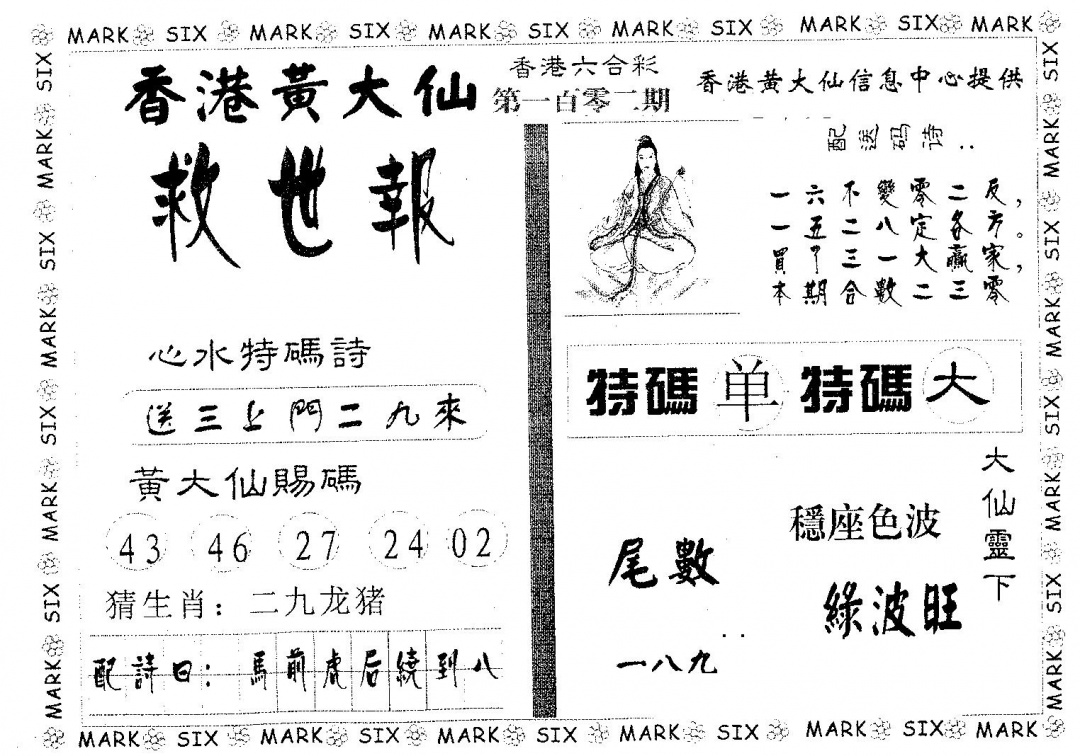 MARK SIX MARK SIX MARK SIX MARK SIX MARK SIX MARK
香港黃大仙
救世報
香港六合彩
第一百零二期
香港黄大仙信息中心提供
配送码诗:
一六不變零二反,
一五二八定各方。
買甲三一大贏家,
本期合數二三零
心水特碼詩
送三上門二九來
黃大仙賜碼
43 46 27 24 02
猜生肖: 二九龙猪
配詩曰: 馬前虎后繞到八
特碼 单 特碼 大
大仙靈下
穩座色波
綠波旺
尾數
一八九
MARK SIX MARK SIX MARK SIX MARK SIX MARK SIX MARK
MARK SIX MARK SIX MARK SIX MARK SIX
MARK SIX MARK SIX MARK SIX MARK SIX